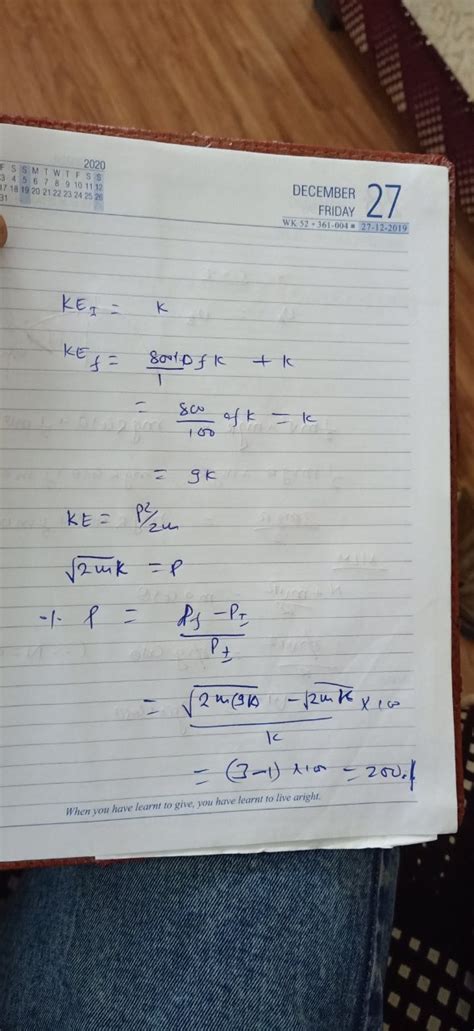 2020
F S S M T W T F S S
3 4 5 6 7 8 9 10 11 12
17 18 19 20 21 22 23 24 25 26
31
DECEMBER 27
FRIDAY
WK 52 • 361-004 ■ 27-12-2019
KE_I = K
KE_f = 800% of K / 1 + K
= 800/100 of K = K
= 9K
KE = P²/2m
√2mK = P
% P = P_f - P_I / P_I
= √2m(9K) - √2mK / K × 100
= (3-1) × 100 = 200%
When you have learnt to give, you have learnt to live aright.